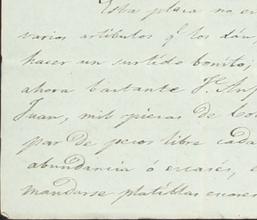 Esta plaza no en
varios artibutos qe los dan,
hacer un surtido bonito;
ahora bastante
Juan, mil piezas de
par de pesos libre cada
abundancia ó escasés,
mandarse platillas